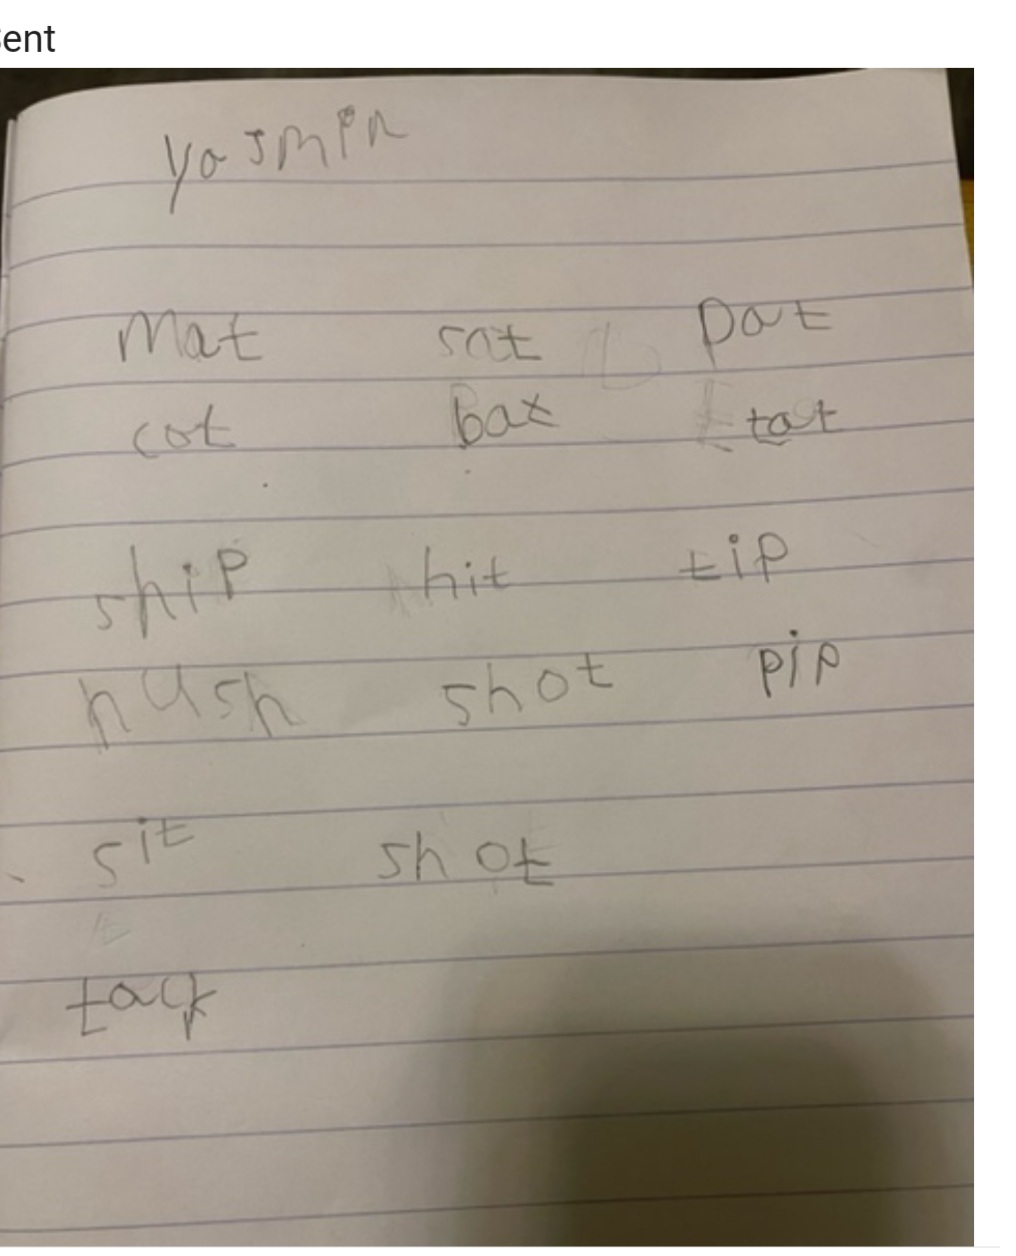 ent
yasmin
Mat sat pat
cot bat tat
ship hit tip
hush shot pip
sit shot
tack